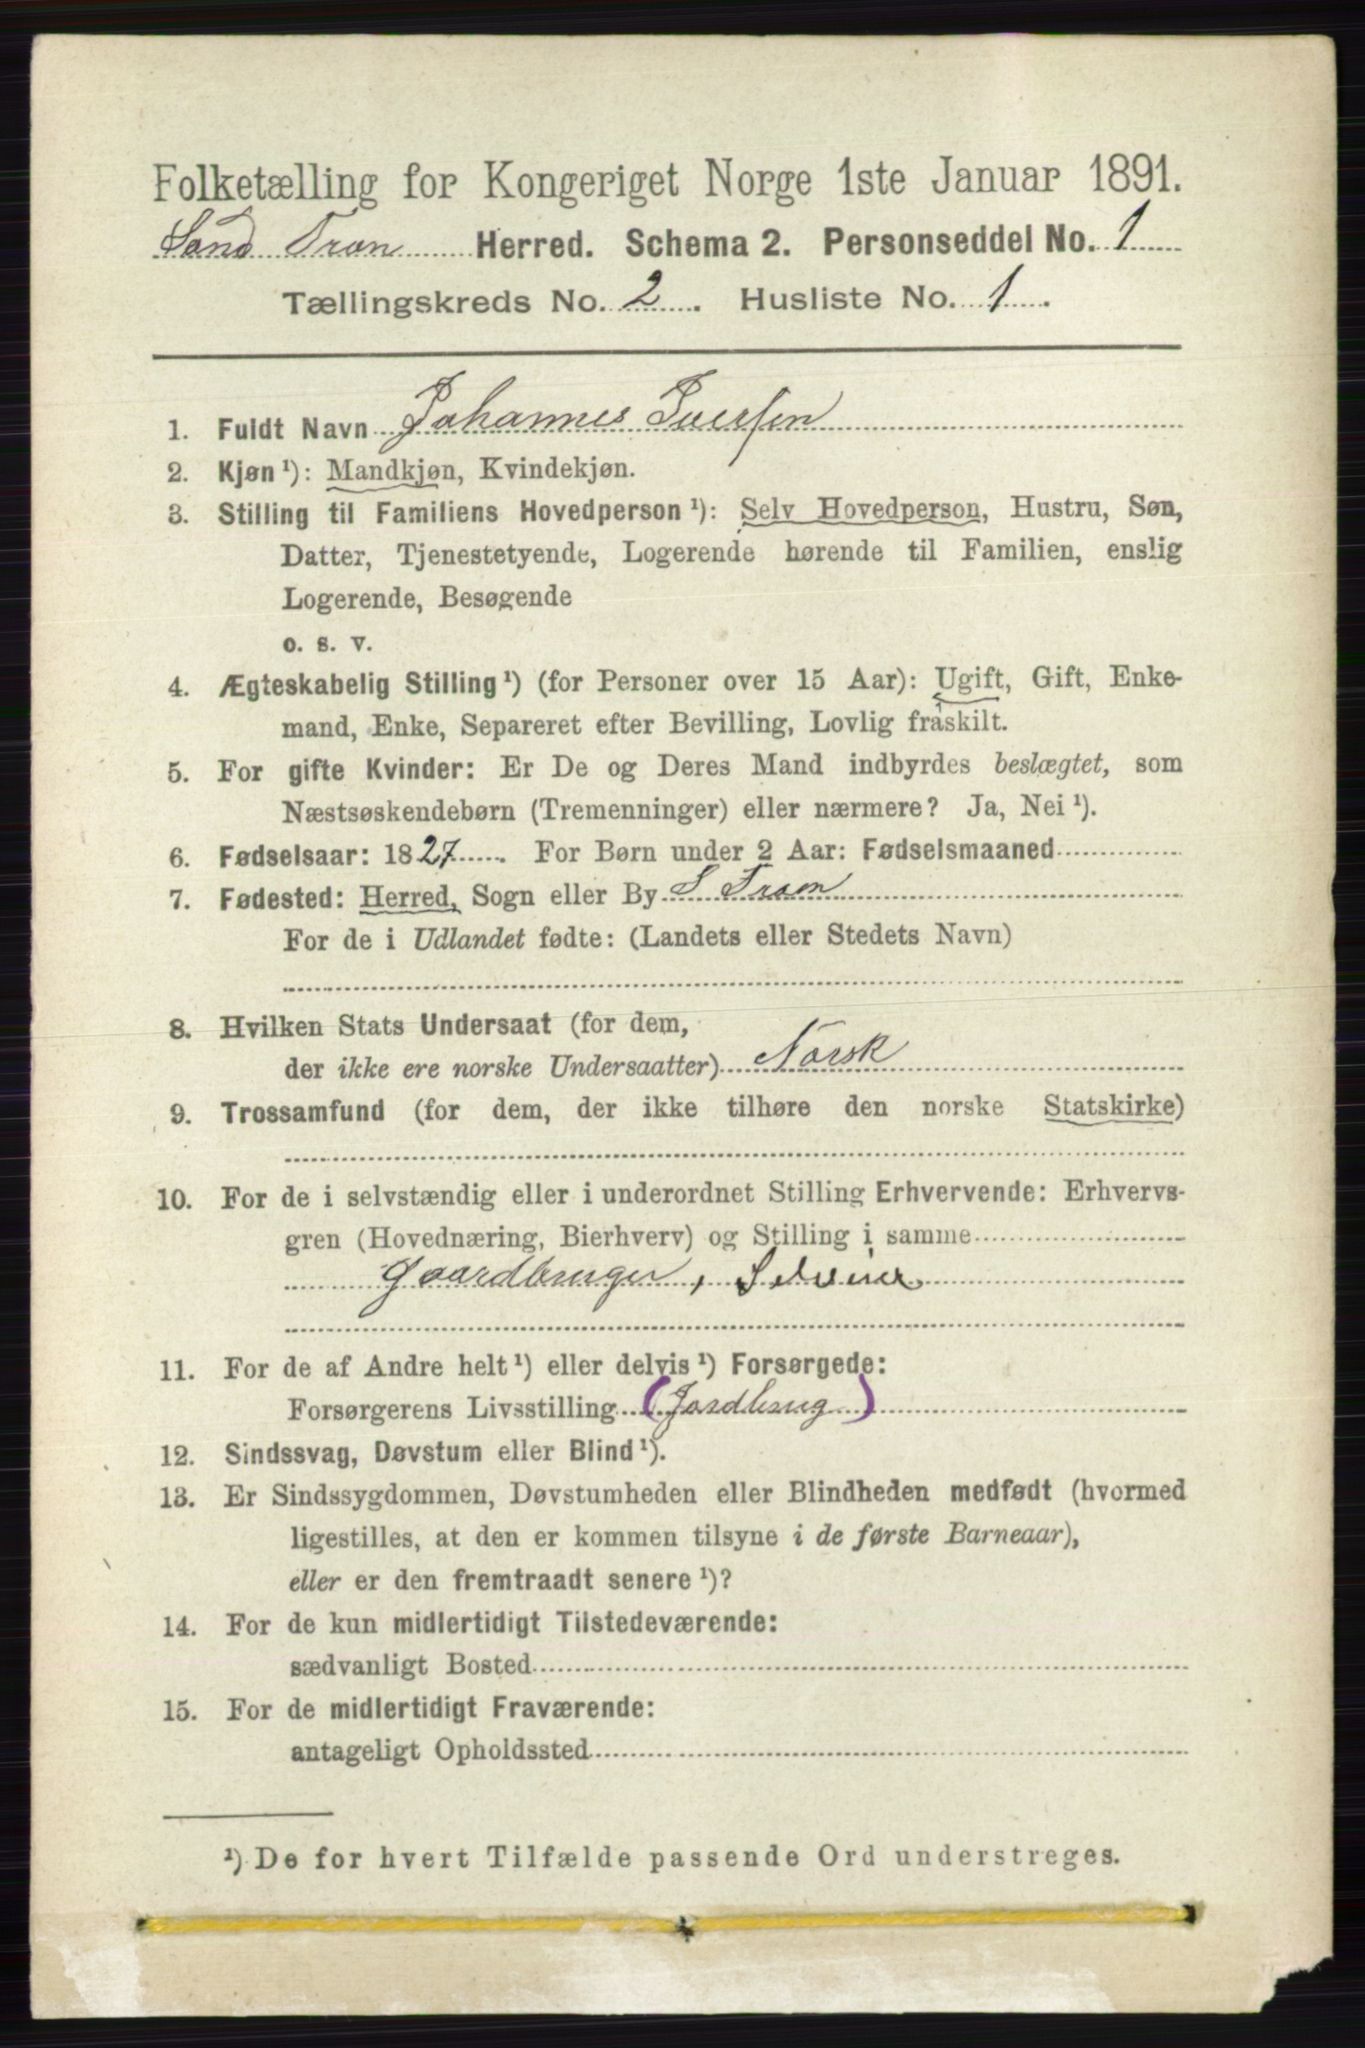 Folketælling for Kongeriget Norge 1ste Januar 1891.
Sand Tron Herred. Schema 2. Personseddel No. 1
Tællingskreds No. 2. Husliste No. 1.
1. Fuldt Navn Johannes Iversen
2. Kjøn¹): Mandkjøn, Kvindekjøn.
3. Stilling til Familiens Hovedperson¹): Selv Hovedperson, Hustru, Søn,
Datter, Tjenestetyende, Logerende hørende til Familien, enslig
Logerende, Besøgende
o. s. v.
4. Ægteskabelig Stilling¹) (for Personer over 15 Aar): Ugift, Gift, Enke-
mand, Enke, Separeret efter Bevilling, Lovlig fraskilt.
5. For gifte Kvinder: Er De og Deres Mand indbyrdes beslægtet, som
Næstsøskendebørn (Tremenninger) eller nærmere? Ja, Nei¹).
6. Fødselsaar: 1827. For Børn under 2 Aar: Fødselsmaaned
7. Fødested: Herred, Sogn eller By S Tron
For de i Udlandet fødte: (Landets eller Stedets Navn)
8. Hvilken Stats Undersaat (for dem,
der ikke ere norske Undersaatter) Norsk
9. Trossamfund (for dem, der ikke tilhøre den norske Statskirke)
10. For de i selvstændig eller i underordnet Stilling Erhvervende: Erhvervs-
gren (Hovednæring, Bierhverv) og Stilling i samme
Gaardbruger, Selveier
11. For de af Andre helt¹) eller delvis¹) Forsørgede:
Forsørgerens Livsstilling (Jordbrug)
12. Sindssvag, Døvstum eller Blind¹).
13. Er Sindssygdommen, Døvstumheden eller Blindheden medfødt (hvormed
ligestilles, at den er kommen tilsyne i de første Barneaar),
eller er den fremtraadt senere¹)?
14. For de kun midlertidigt Tilstedeværende:
sædvanligt Bosted
15. For de midlertidigt Fraværende:
antageligt Opholdssted
¹) De for hvert Tilfælde passende Ord understreges.